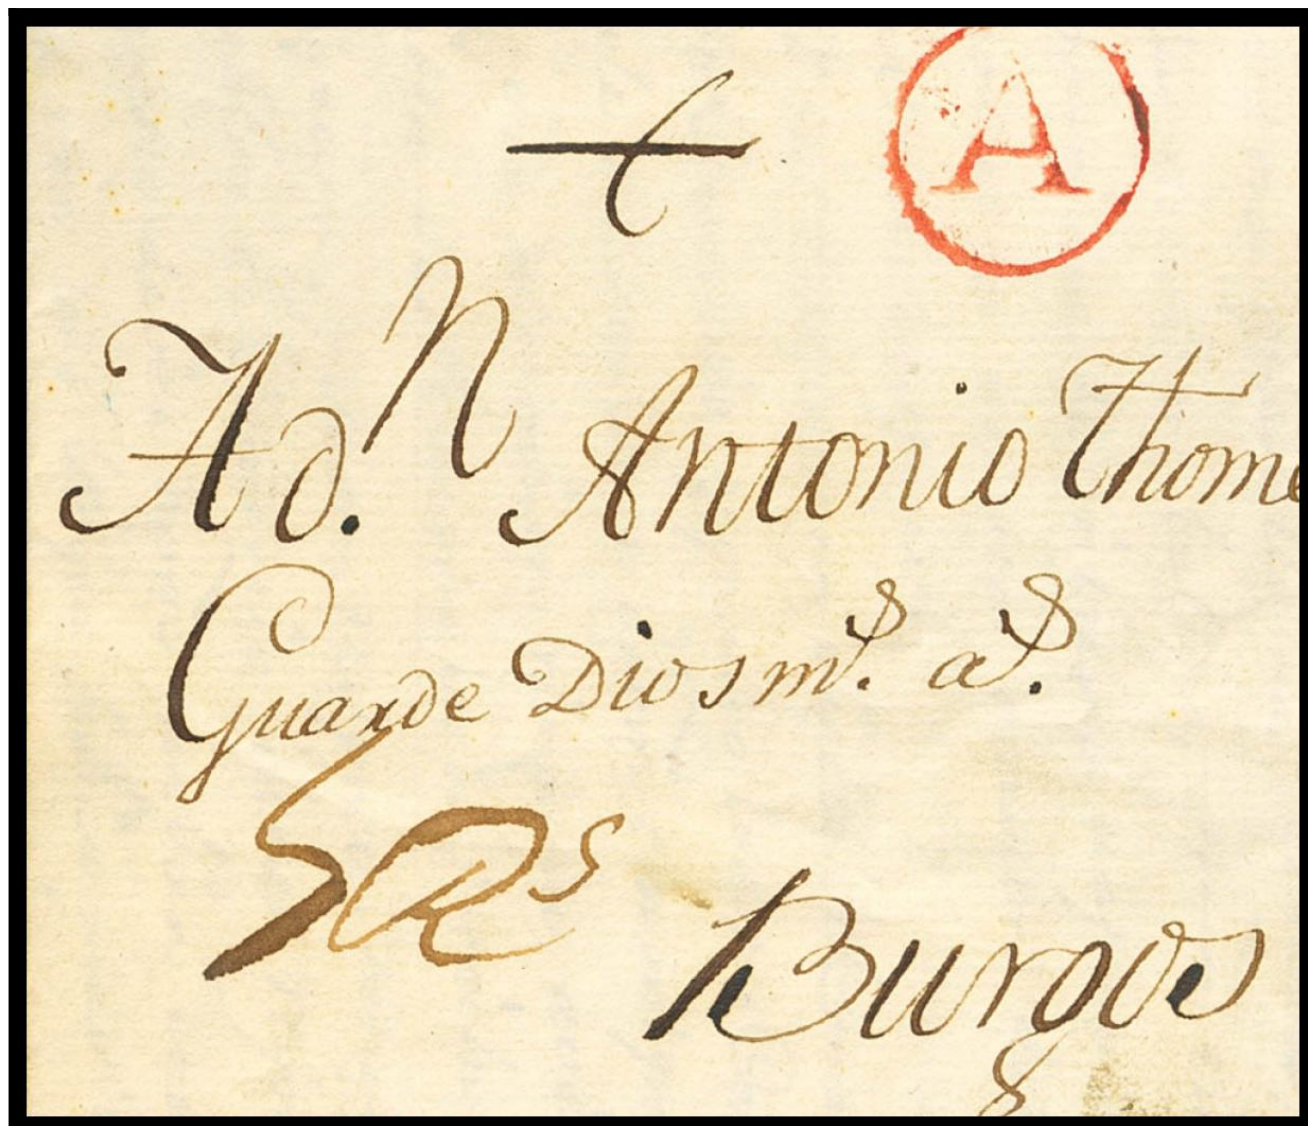 A
A d.n Antonio Thome
Guarde Dios ms. as.
5 Rs
Burgos